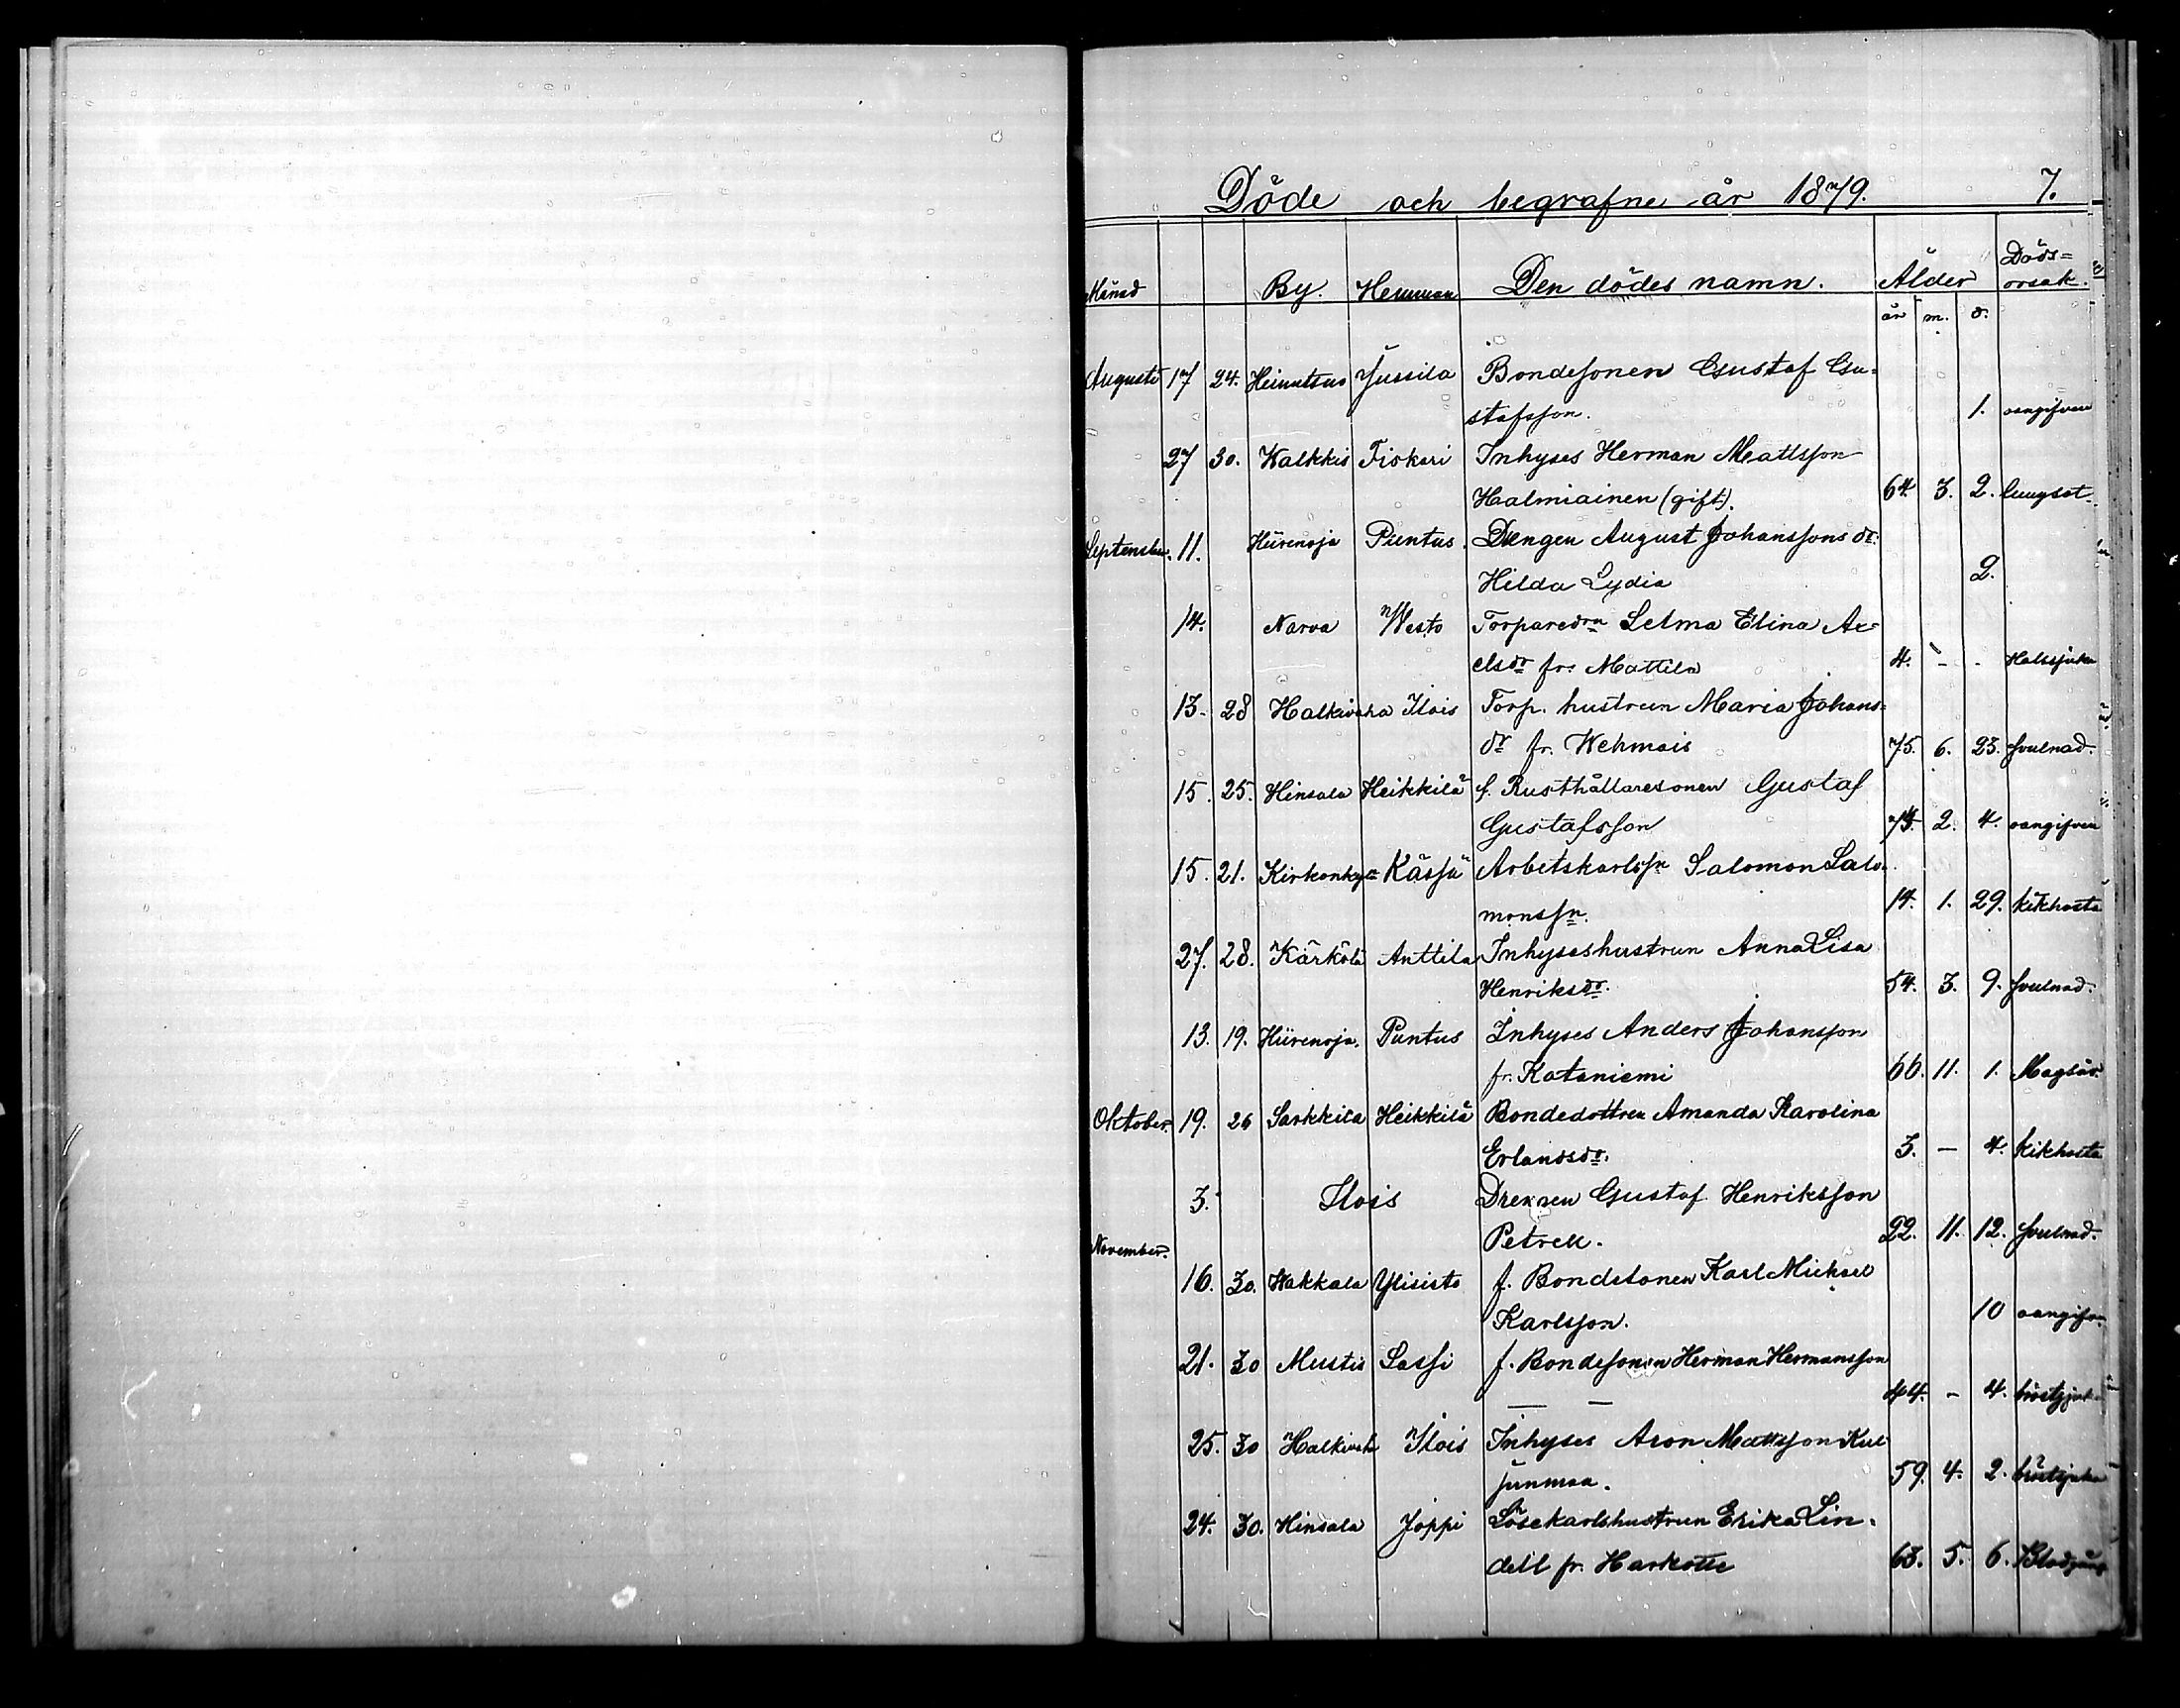 Döde och begrafne år 1879. 7.
Månad By. Hemman Den dödes namn. Ålder Döds=
orsak.
år m. d.
Augusti 17 24. Heinutsuo Jussila Bondesonen Gustaf Gu-
stafsson. 1. oangifven
27 30. Walkkis Fiskari Inhyses Herman Mattsson
Halmiainen (gift). 64. 3. 2. lungsot.
September. 11. Hiirenoja Puntus Drengen August Johanssons dr
Hilda Lydia 2.
14. Narva Westo Torparedrn Selma Elina Ax-
elsdr fr. Mattila 4. - - Halssjuka
13. 28 Halkivaha Ilois Torp. hustrun Maria Johans-
dr fr. Wehmais 75. 6. 23. svulnad.
15. 25. Hinsala Heikkilä f. Rusthållaresonen Gustaf
Gustafsson 2. 4. oangifven
15. 21. Kirkonkyä Kässä Arbetskarlssn Salomon Salo-
monssn. 14. 1. 29. kikhosta
27. 28. Kärkölä Anttila Inhyseshustrun Anna Lisa
Henriksdr. 54. 3. 9. svulnad.
13. 19. Hiirenoja. Puntus Inhyses Anders Johansson
fr. Kataniemi 66. 11. 1. Magsår.
Oktober. 19. 26 Sarkkila Heikkilä Bondedottren Amanda Karolina
Erlandsdr. 3. — 4. Kikhosta
3. Ilois Drengen Gustaf Henriksson
Petrell. 22. 11. 12. svulnad.
November.
16. 30. Wakkala Ylisisto f. Bondesonen Karl Michael
Karlsson. 10 oangifv.
21. 30 Mustis Sassi f. Bondesonen Herman Hermansson
44. - 4. bröstsjuka
25. 30 Halkivah Ilois Inhyses Aron Mattsson Kul
junmaa. 59. 4. 2. bröstsjuka
24. 30. Hinsala Joppi Lösekarlshustrun Erika Lin-
dell fr. Harkotte 63. 5. 6.